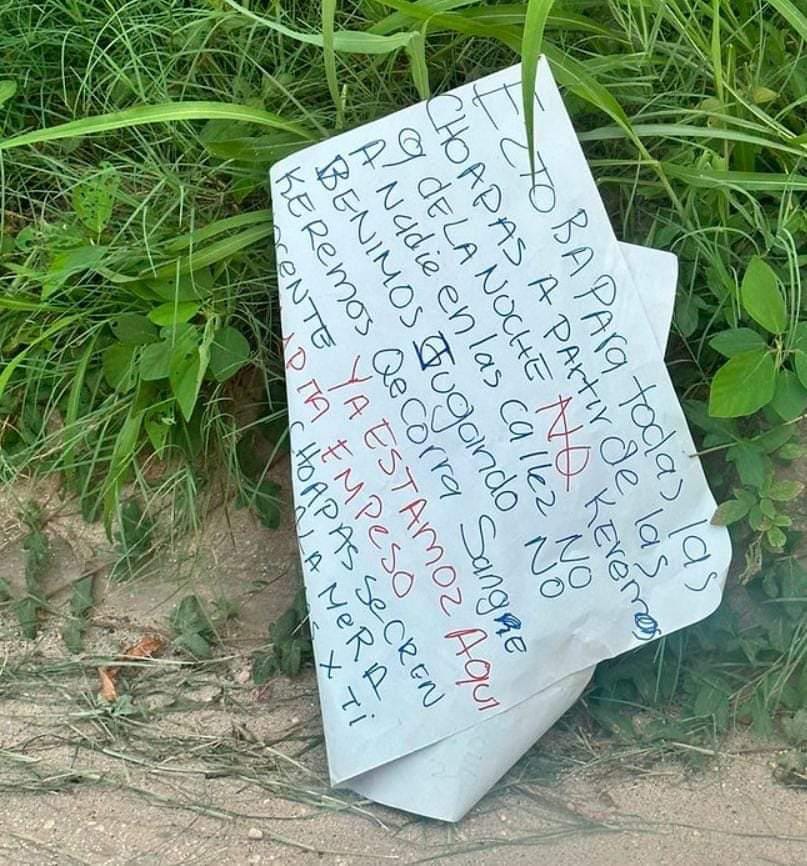 EZTO BA PARA todas las
CHOAPAS A PARtir de las
9 dE LA NOCHE NO KEREMOS
A NAdie en las CAllEZ NO
BENIMOS JUgando NO
KEREMOS QE CORRA SangRE
CENTE YA ESTAMOZ AQUI
EMPESO
CHOAPAS SE CREN
LA MERA
X Ti